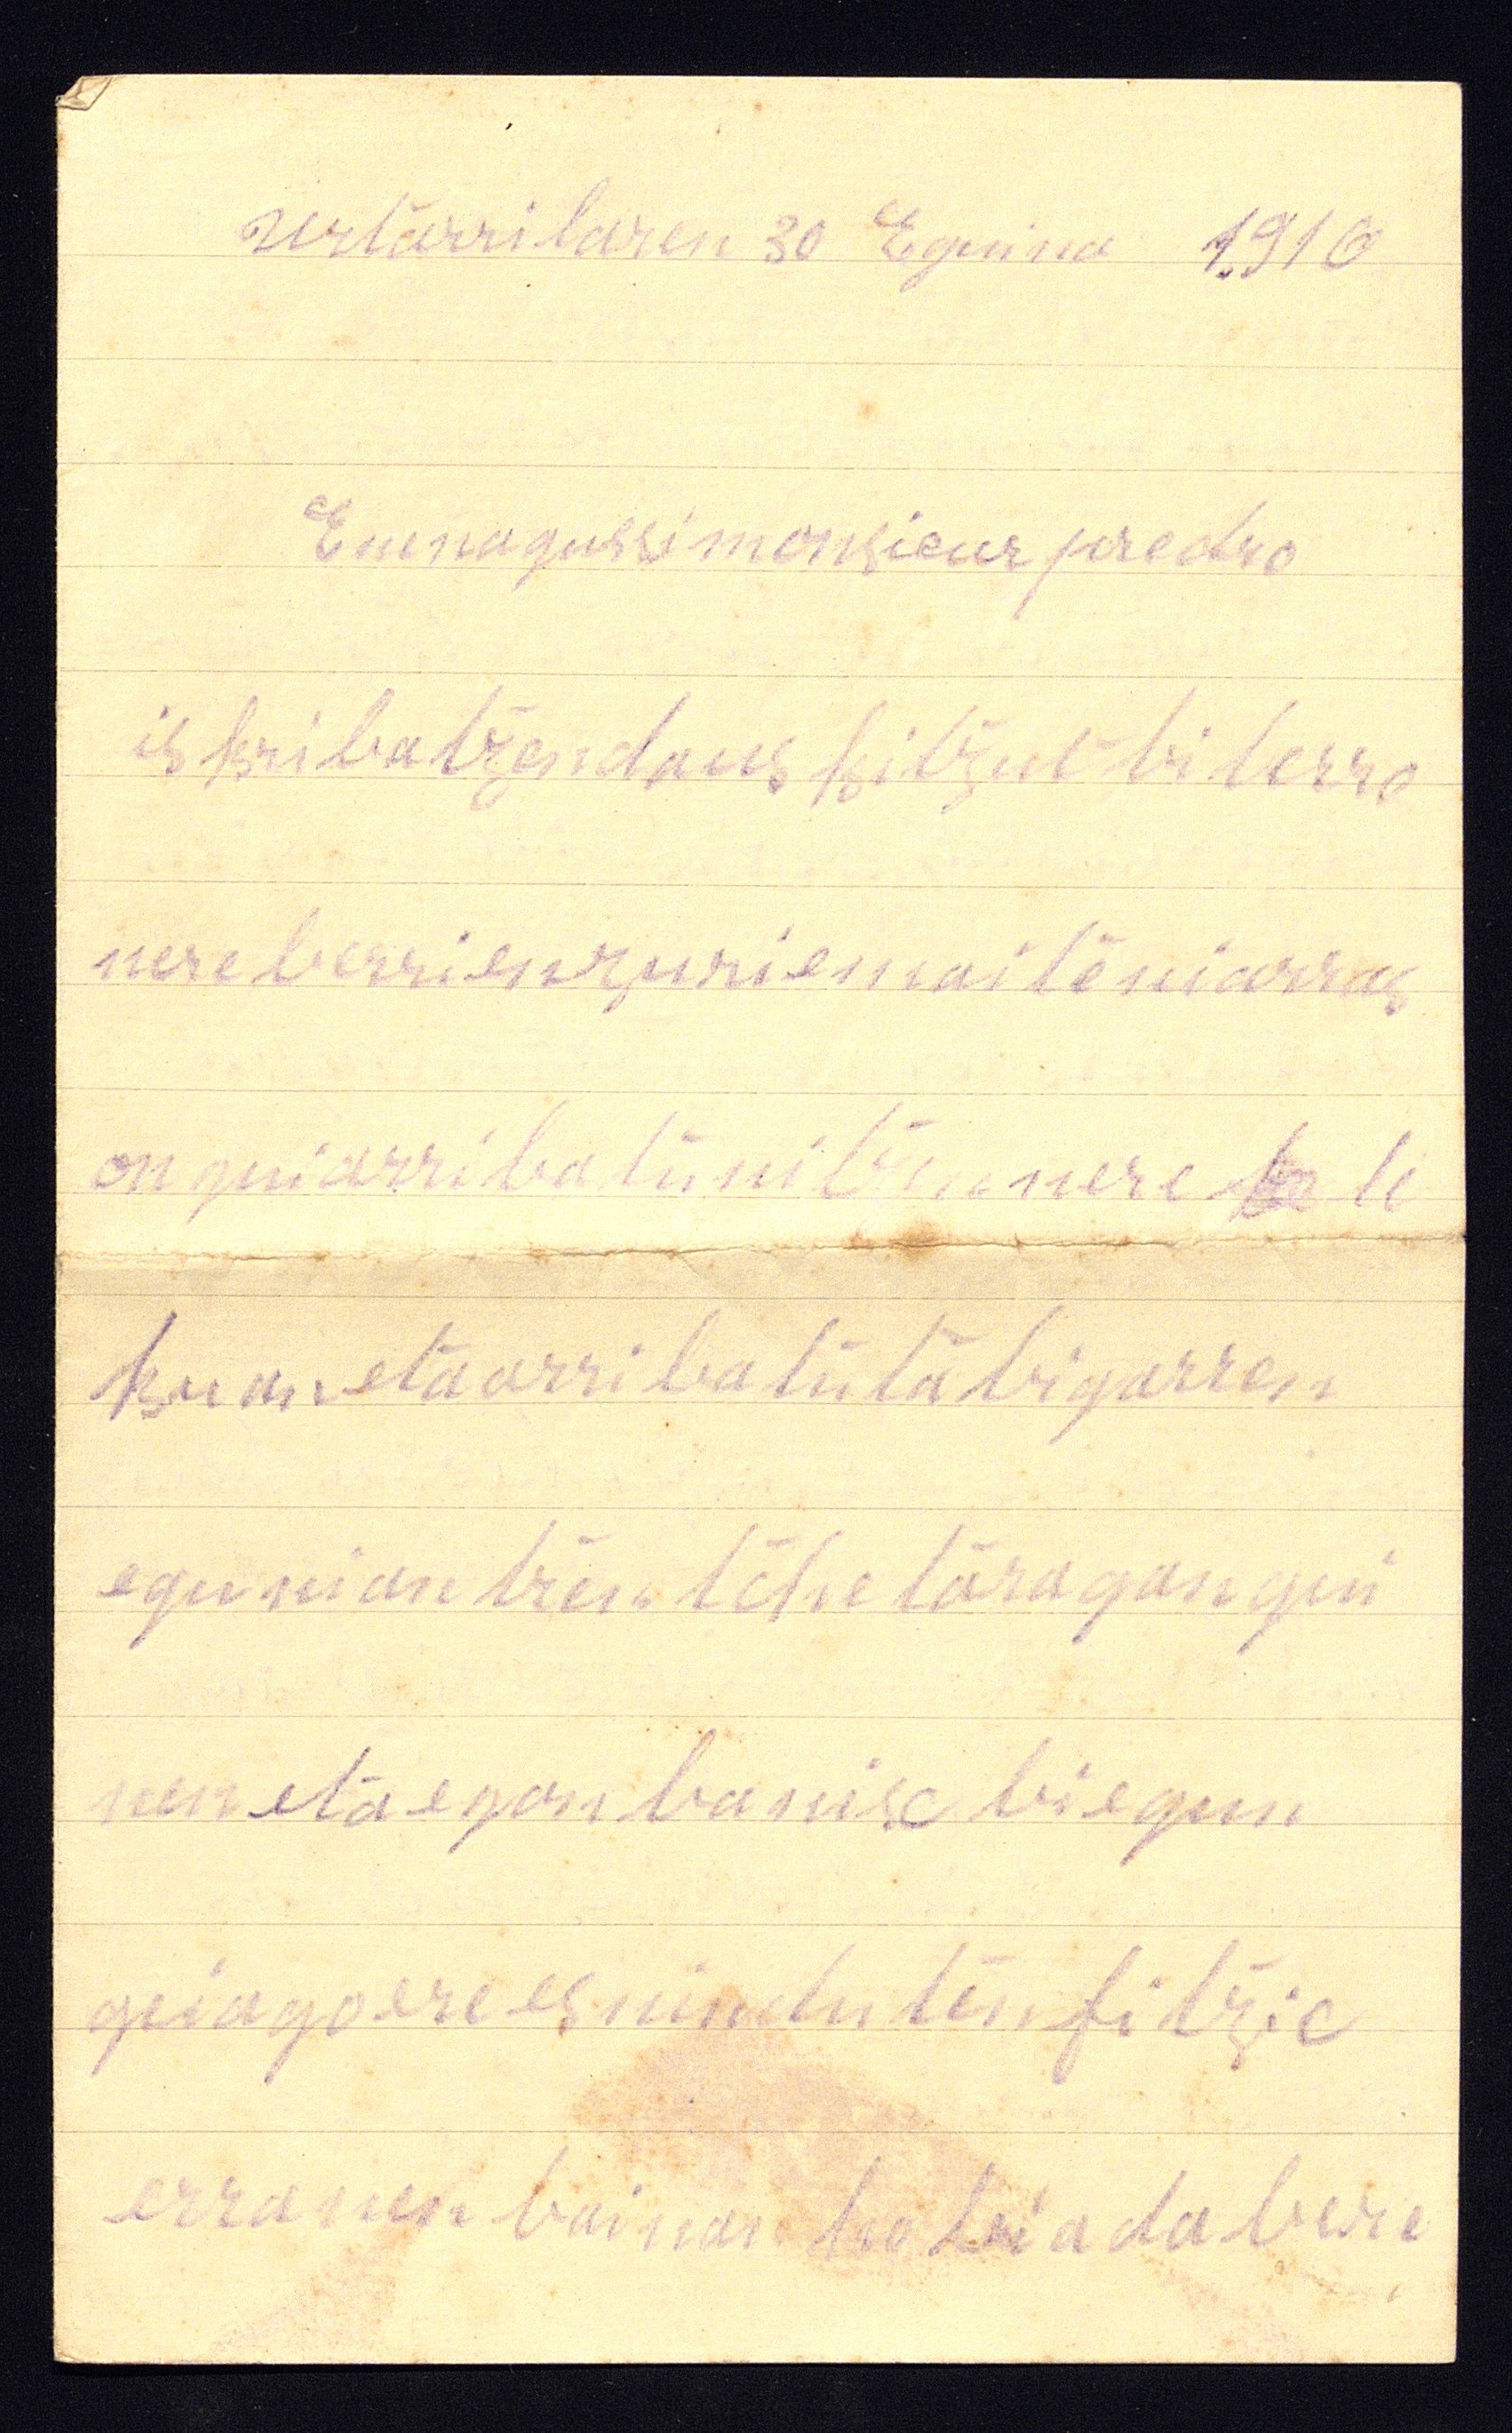 Urtarrilaren 30 Eguina 1910
Enenagussi monsieur predro
iskribatzendauskitzut bi lerro
nere berrien zurien naiteniarras
onguiarribatunitzen nere le
kuan eta arribatuta bigarren
egunian tren tchetaragangui
nen eta egon banisc biegun
geiago ere esninduten fitzic
erranen bainan hobia da bere